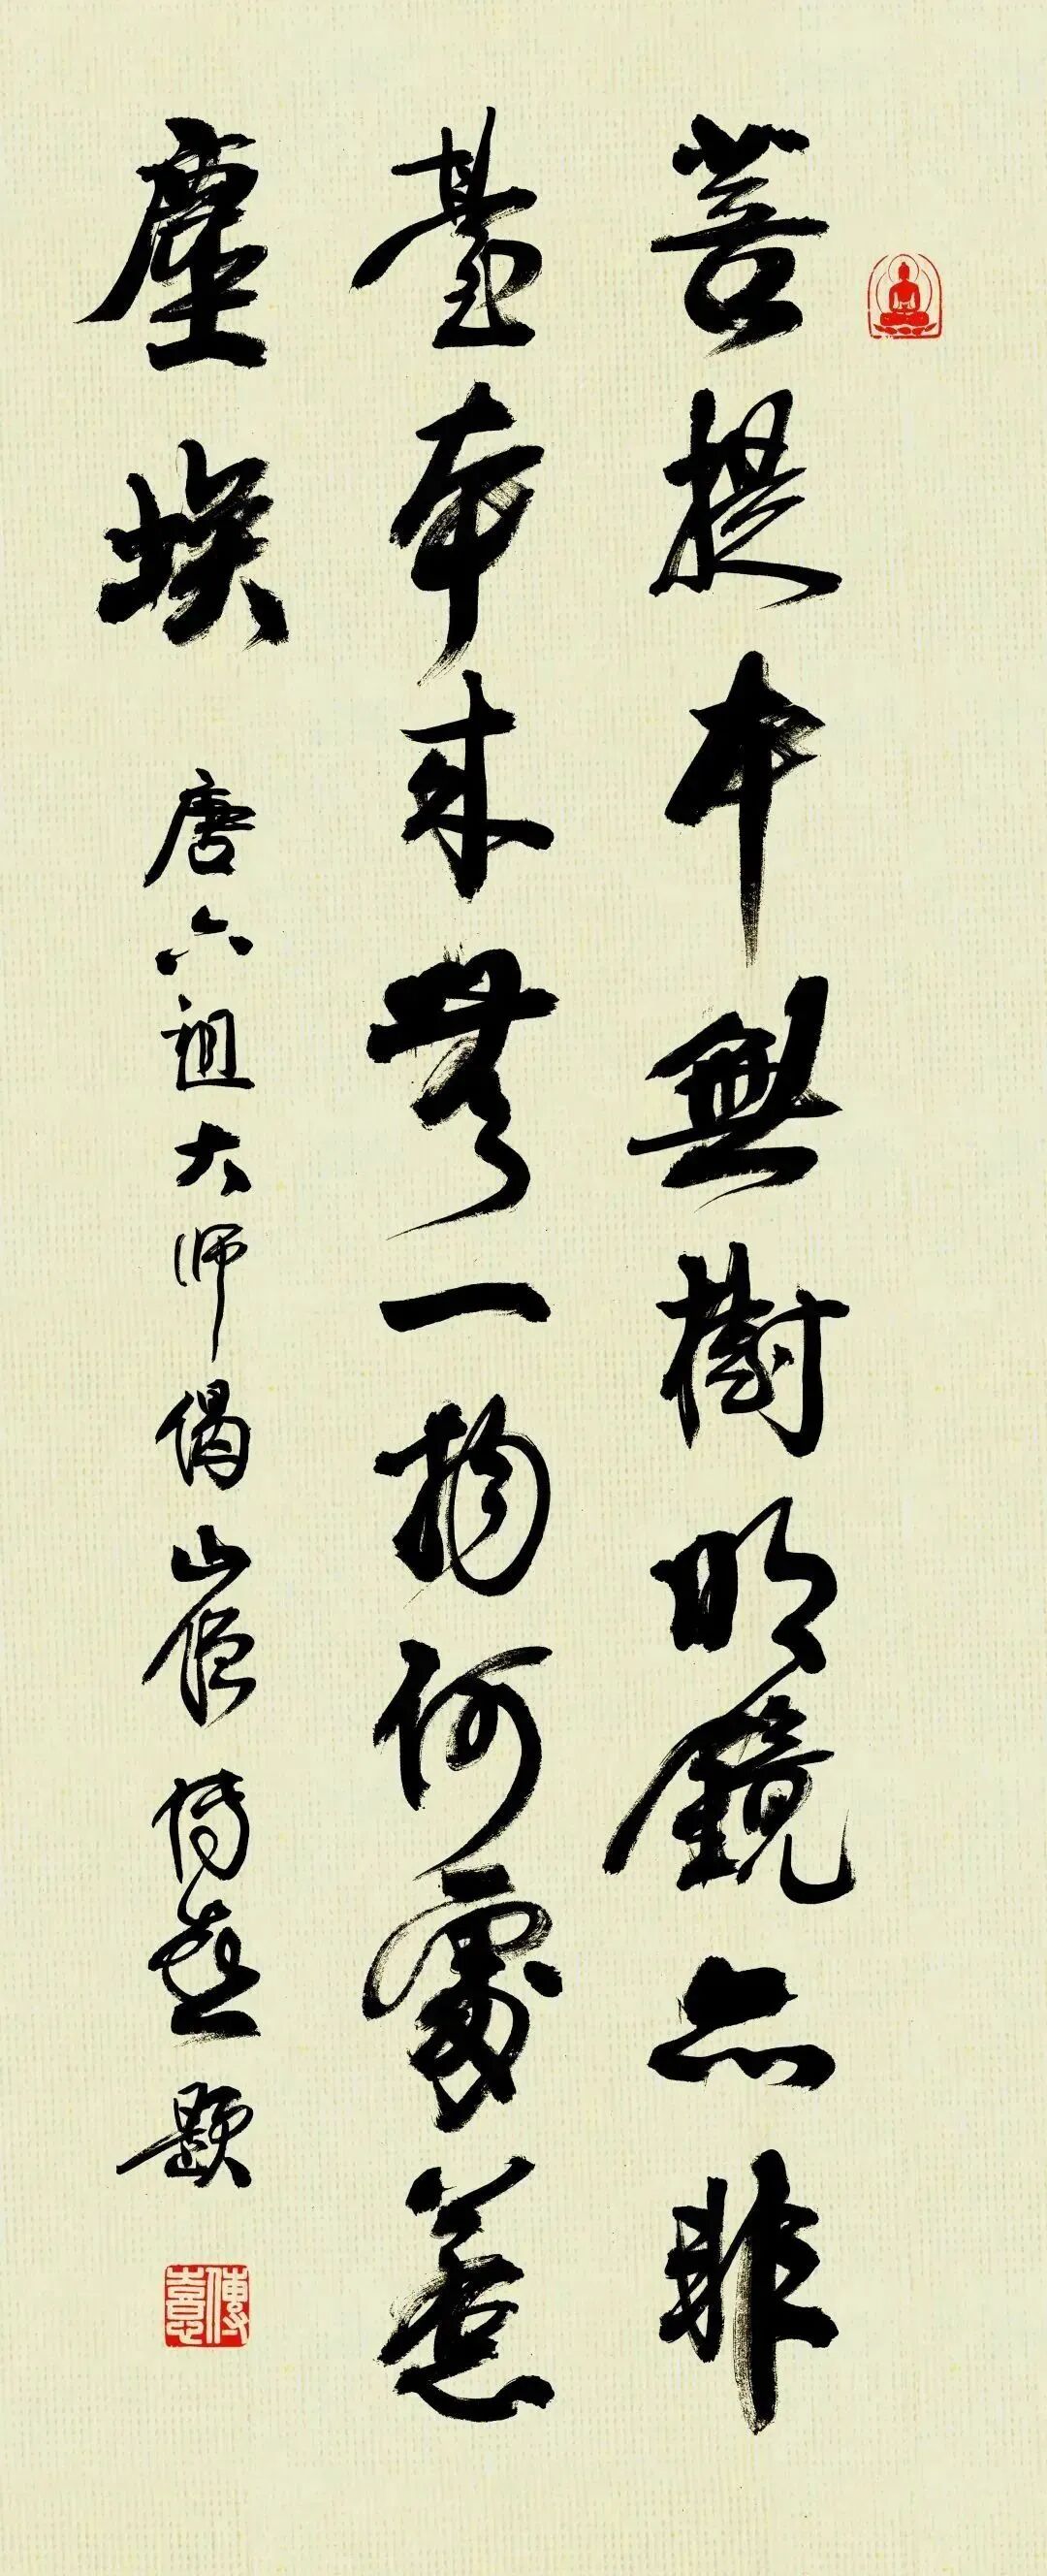 菩提本無樹明鏡亦非
臺本来無一物何處惹
塵埃
唐六祖大师偈山僧传喜題
傳憙